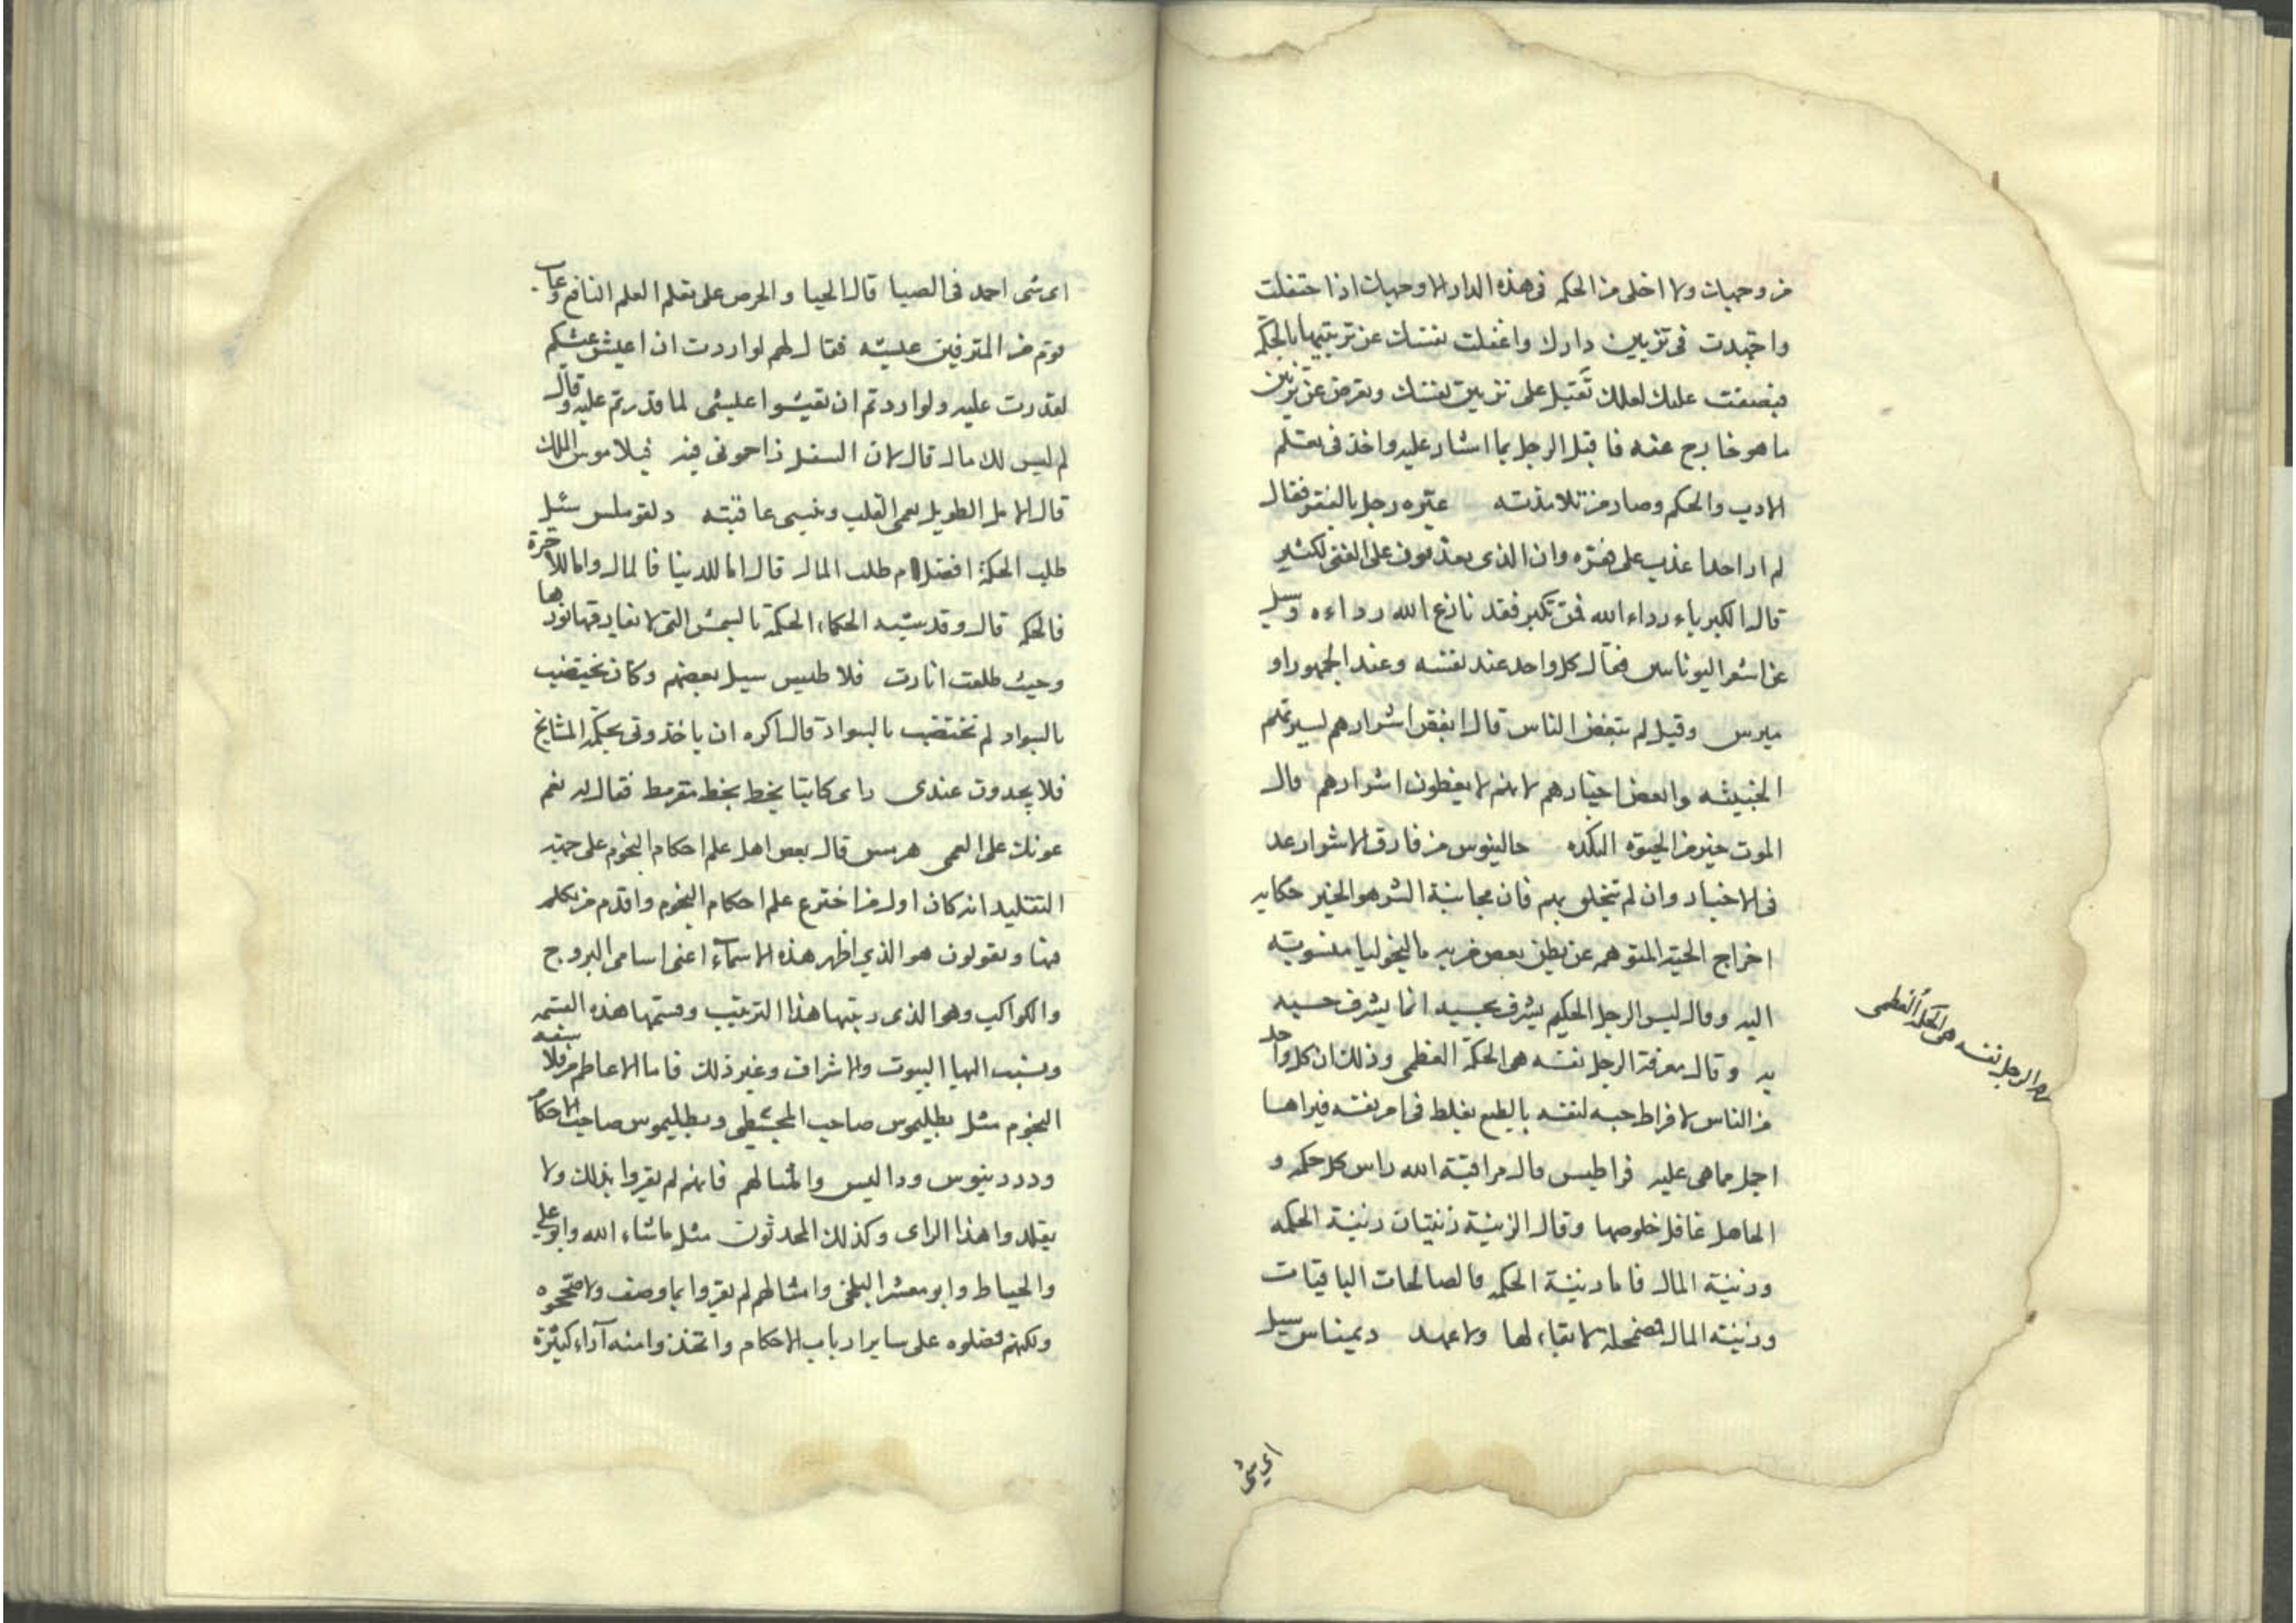 من وجهك ولا اخلى من الحكمة فى هذه الدار الا وجهك اذا احتفلت
واجتهدت فى تزيين دارك واغفلت نفسك عن تزيينها بالحكمة
فبصقت عليك لعلك تقبل على تزيين نفسك وتعرض عن تزيين
ما هو خارج عنه فاقبل الرجل بما اشار عليه واخذ فى تعلم
الادب والحكم وصار من تلامذته عيّره رجل بالفقر فقال
لم ار احدا عذب على فقره وان الذى يعذبون على الغنى لكثير
قال الكبرياء رداء الله فمن تكبر فقد نازع الله رداءه وسئل
عن اشعر اليونانيين فقال كل واحد عند نفسه وعند الجمهور او
ميرس وقيل لم تبغض الناس قال ابغض اشرارهم لسيرتهم
الخبيثه وابغض اخيارهم لانهم لا يعظون اشرارهم قال
الموت خير من الحيوة النكده جالينوس من فارق الاشرار عد
فى الاخيار وان لم يتخلق بهم فان مجانبة الشر هو الخير حكاية
اخراج الحية المتوهم عن بطن بعض من به ماليخوليا منسوبته
اليه وقال ليس الرجل الحكيم يشرف بحسبه انما يشرف حسبه
به وقال معرفة الرجل نفسه هى الحكمة العظمى وذلك ان كل واحد
من الناس لافراط حبه لنفسه بالطبع يغلط فى امر نفسه فيراها
اجل مما هى عليه قراطيس قال مراقبة الله راس كل حكمه و
الجاهل غافل خلوصها وقال الزينة زينتان زينة الحكمه
وزينة المال فاما زينة الحكمه فالصالحات الباقيات
وزينة المال مضمحلة لا بقاء لها ولا عهد ديميناس سئل
الرجل نفسه هى الحكمة العظمى
اى شى
اى شى احمد فى الصبا قال الحيا والحرص على تعلم العلم النافع وعاب
قوم من المترفين عيشه فقال لهم لو اردت ان اعيش عيشكم
لقدرت عليه ولو اردتم ان تعيشوا عيشى لما قدرتم عليه وقال
لم ليس لك مال قال لان السفل زاحمونى فيه فيلاموس الملك
قال الامل الطويل يعمى القلب وينسى عاقبته دلقوملس سئل
طلب الحكمة افضل ام طلب المال قال اما للدنيا فالمال واما للآخرة
فالحكمه قال وقد يشبه الحكماء الحكمة بالشمس التى لا يفارقها نورها
وحيث طلعت انارت فلاطيس سئل بعضهم وكان يختضب
بالسواد لم تختضب بالسواد قال اكره ان ياخذونى بحكمة المشايخ
فلا يجدون عندى راى كاتبا يخط بخط مقرمط فقال له نعم
عونك على العمى هرمس قال بعض اهل علم احكام النجوم على جهة
التقليد انه كان اول من اخترع علم احكام النجوم واقدم من تكلم
فيها ويقولون هو الذي اظهر هذه الاسماء اعنى اسامى البروج
والكواكب وهو الذى رتبها هذا الترتيب وقسمها هذه القسمه
ونسب اليها البيوت والاشراف وغير ذلك فاما الاعاظم من فلاسفة
النجوم مثل بطليموس صاحب المجسطى وبطليموس صاحب الاحكام
ودردنيوس وداليس وامثالهم فانهم لم يقروا بذلك ولا
يقلدوا هذا الراى وكذلك المحدثون مثل ماشاء الله وابو على
والخياط وابو معشر البلخى وامثالهم لم يقروا بما وصف ولا صححوه
ولكنهم فضلوه على ساير ارباب الاحكام واتخذوا منه آراء كثيرة